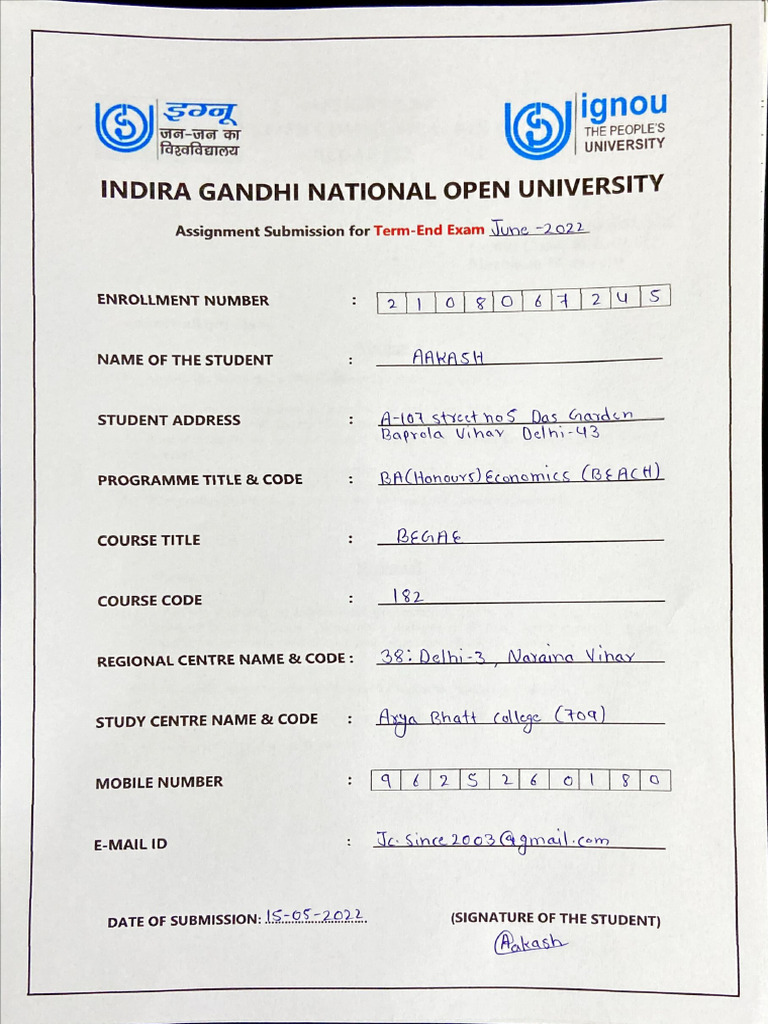 इग्नू
जन-जन का
विश्वविद्यालय
ignou
THE PEOPLE'S
UNIVERSITY
INDIRA GANDHI NATIONAL OPEN UNIVERSITY
Assignment Submission for Term-End Exam June -2022
ENROLLMENT NUMBER : 2108067245
NAME OF THE STUDENT : AAKASH
STUDENT ADDRESS : A-107 street no 5 Das Garden
Baprola Vihar Delhi-43
PROGRAMME TITLE & CODE : BA(Honours) Economics (BEACH)
COURSE TITLE : BEGAE
COURSE CODE : 182
REGIONAL CENTRE NAME & CODE : 38: Delhi-3, Naraina Vihar
STUDY CENTRE NAME & CODE : Arya Bhatt College (709)
MOBILE NUMBER : 9625260180
E-MAIL ID : Jc.since2003@gmail.com
DATE OF SUBMISSION: 15-05-2022 (SIGNATURE OF THE STUDENT)
Aakash